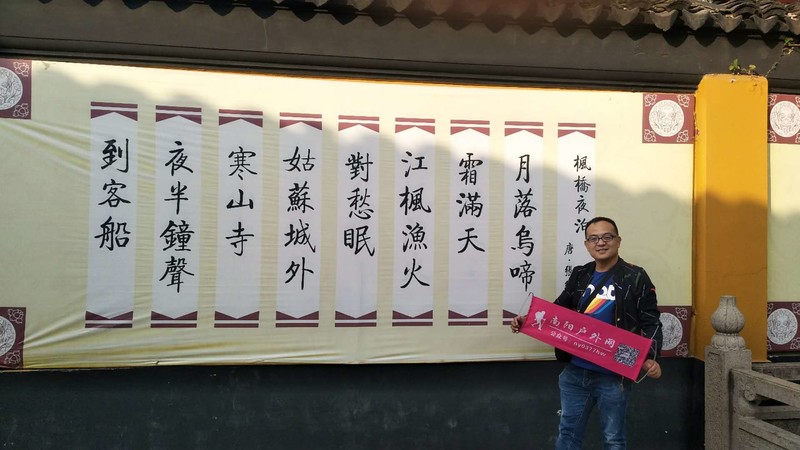 楓橋夜泊
唐·張
月落烏啼
霜滿天
江楓漁火
對愁眠
姑蘇城外
寒山寺
夜半鐘聲
到客船
南阳户外网
公众号：ny0377hw